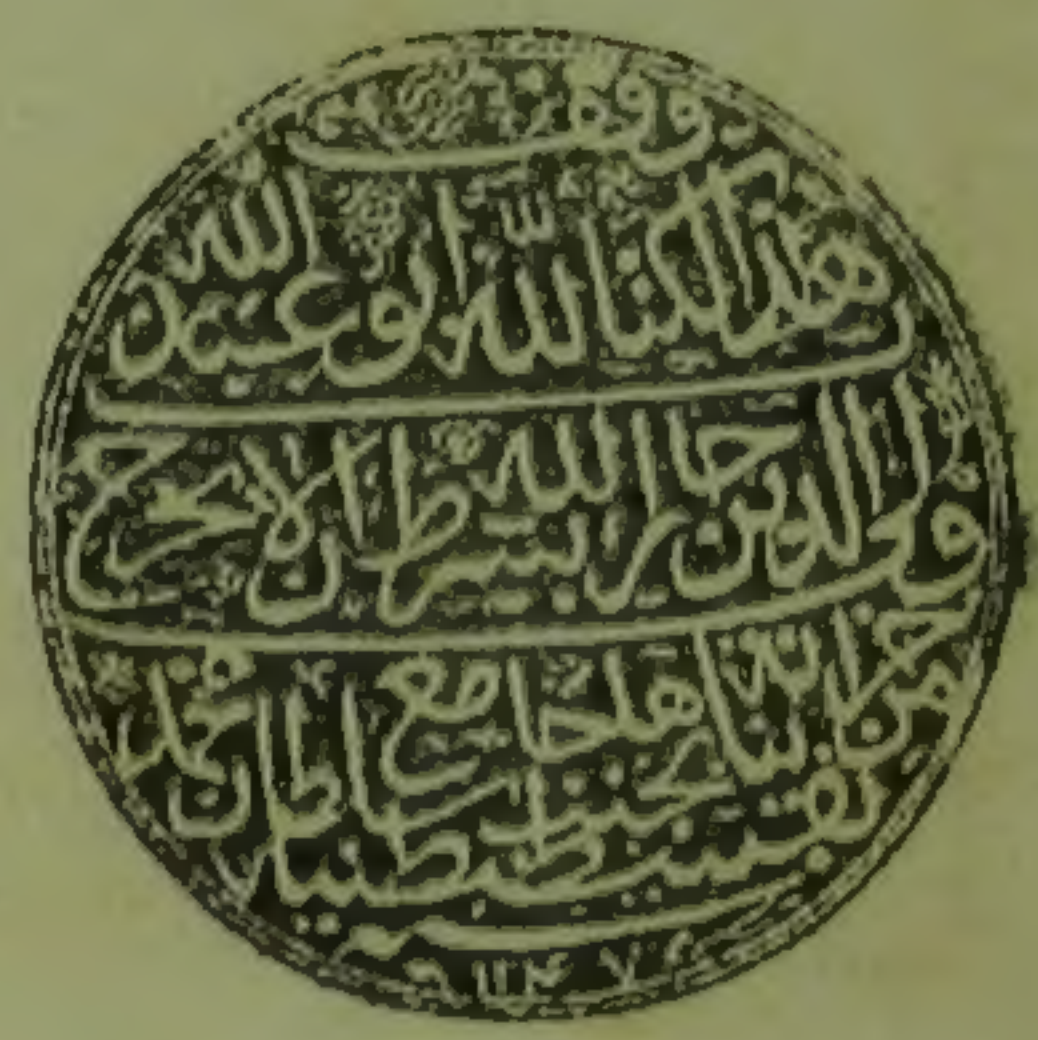 وقف
هذا الكتاب لله ابو عبد الله
ولي الدين جار الله بشرط ان لا يخرج
من خزانة بناها بجنب جامع سلطان محمد
بقسطنطينية
سنة ١١٤٧